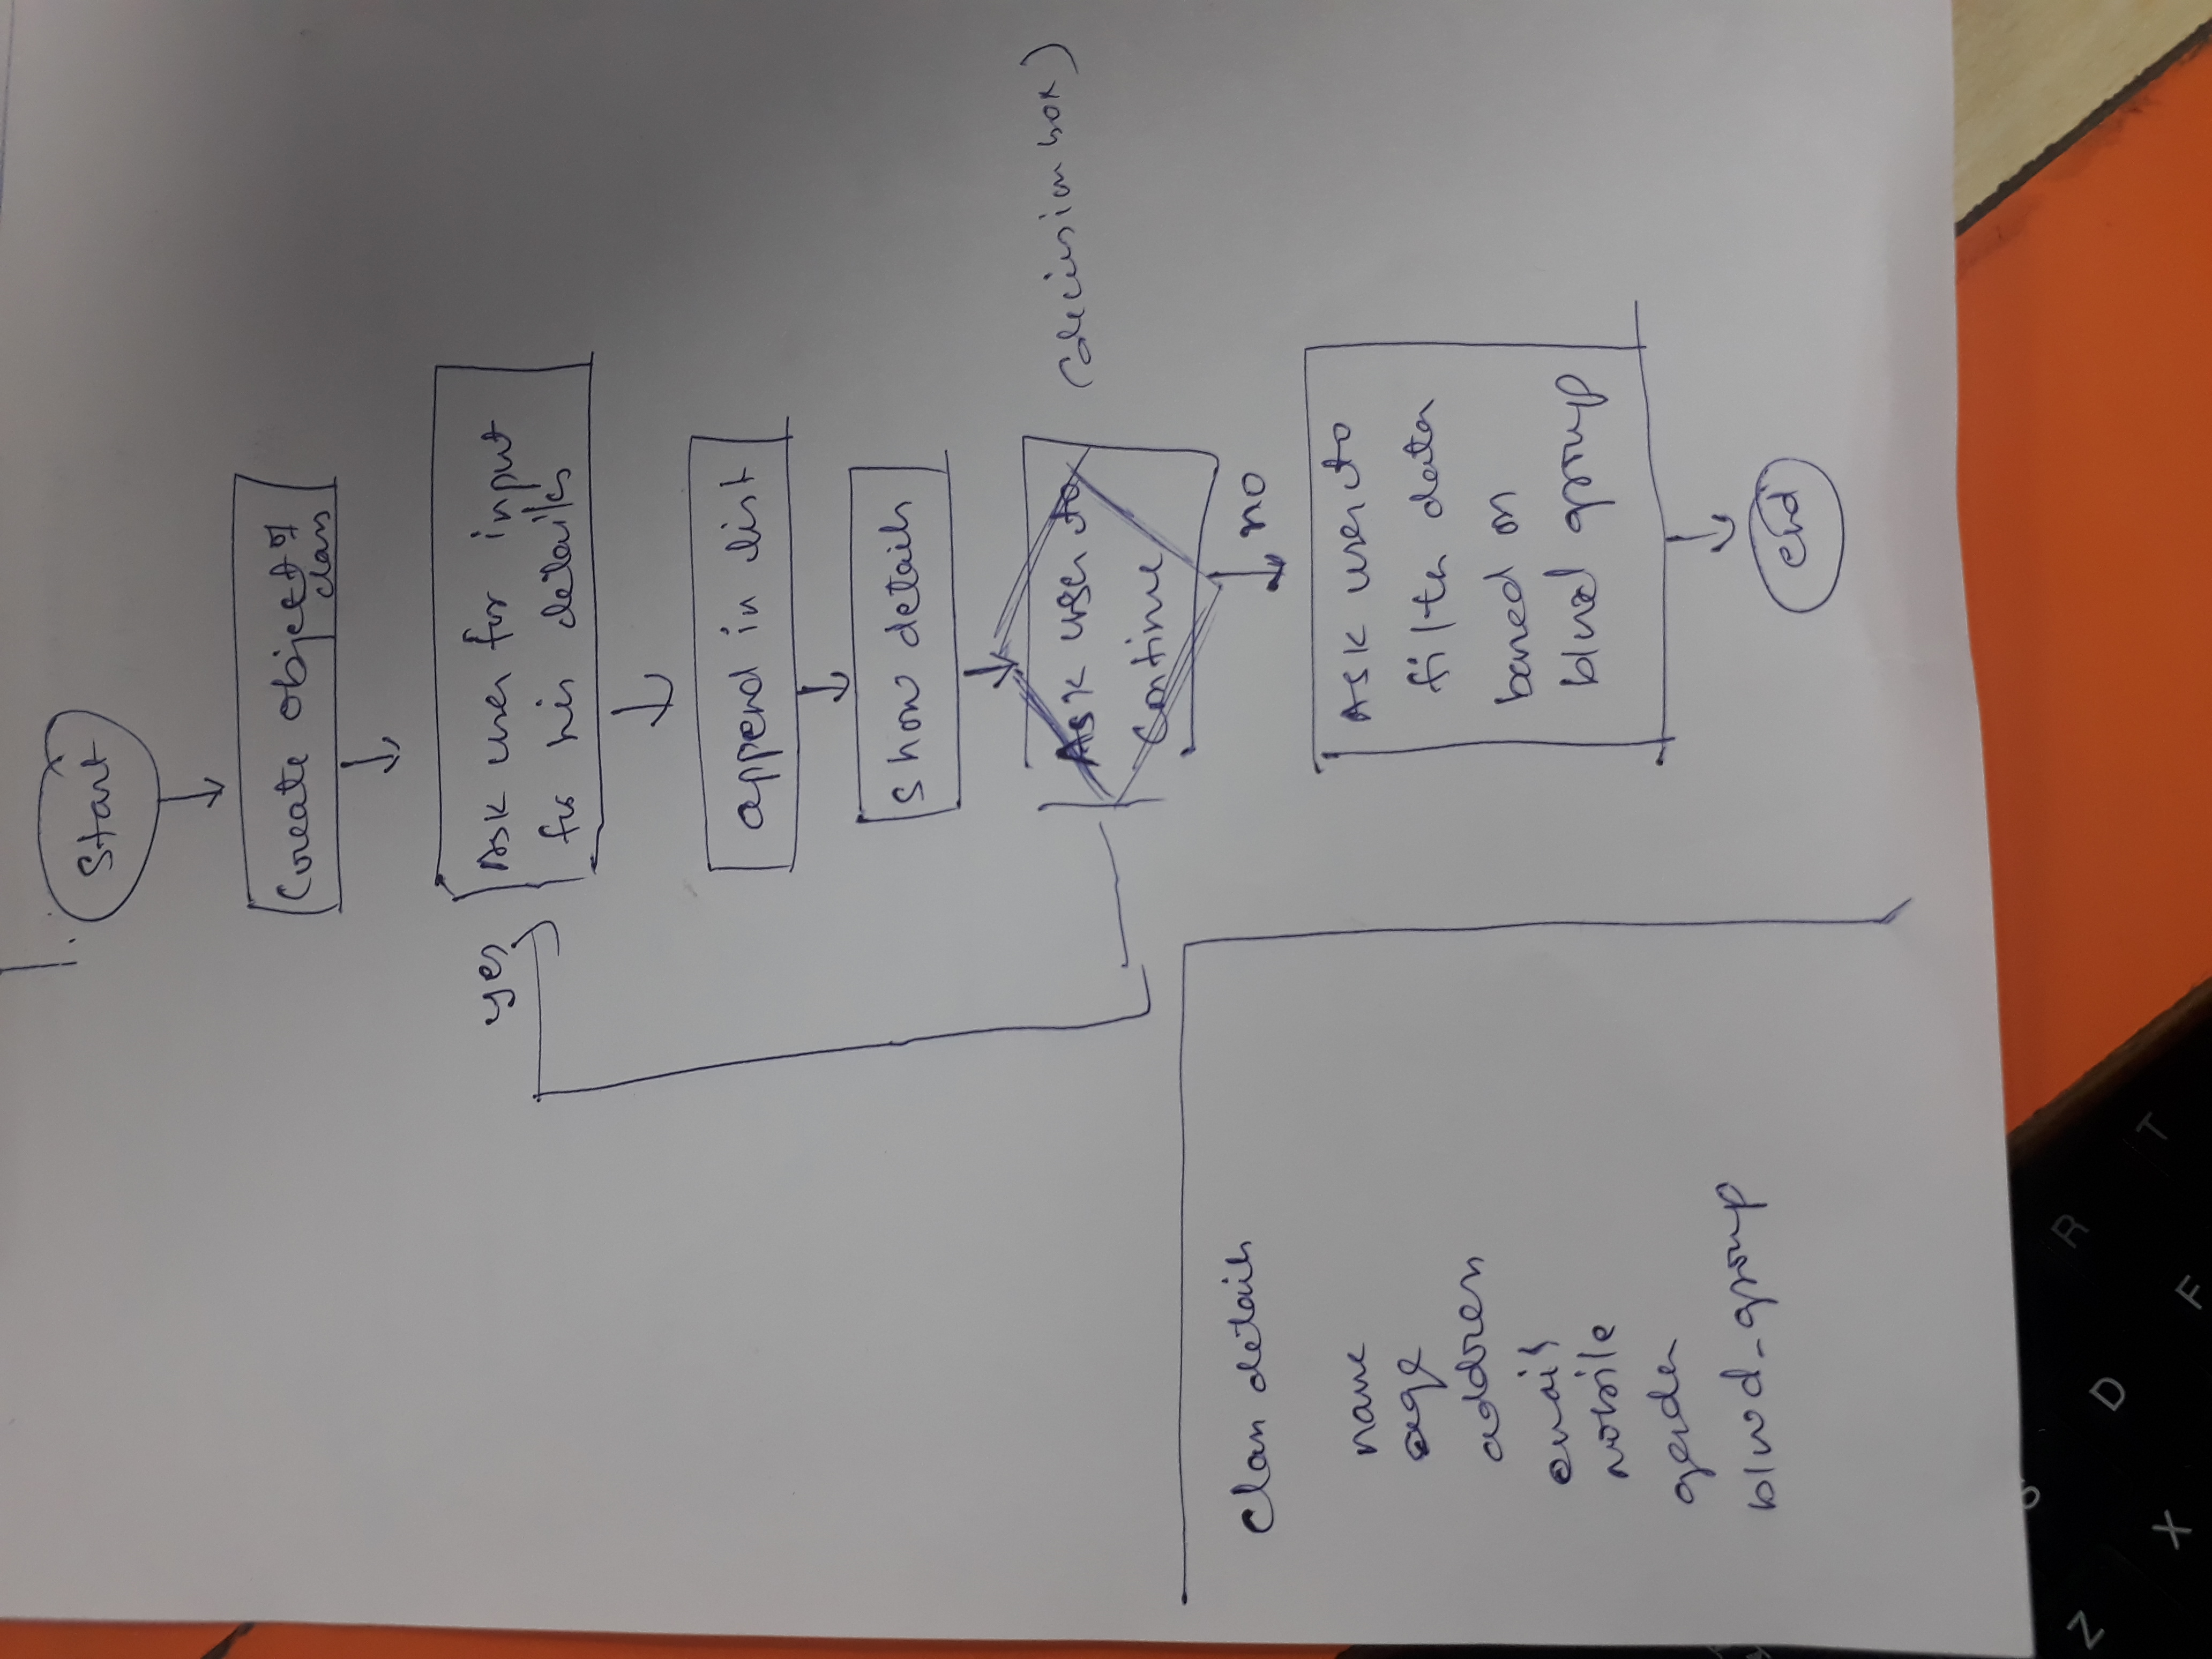 1.
Start
Create object of
class
yes
Ask user for input
for his details
append in list
show details
Ask user to
Continue
(decision box)
no
Ask user to
filter data
based on
blood group
end
Class details
name
age
address
email
mobile
gender
blood_group
Z
X
D
F
R
T